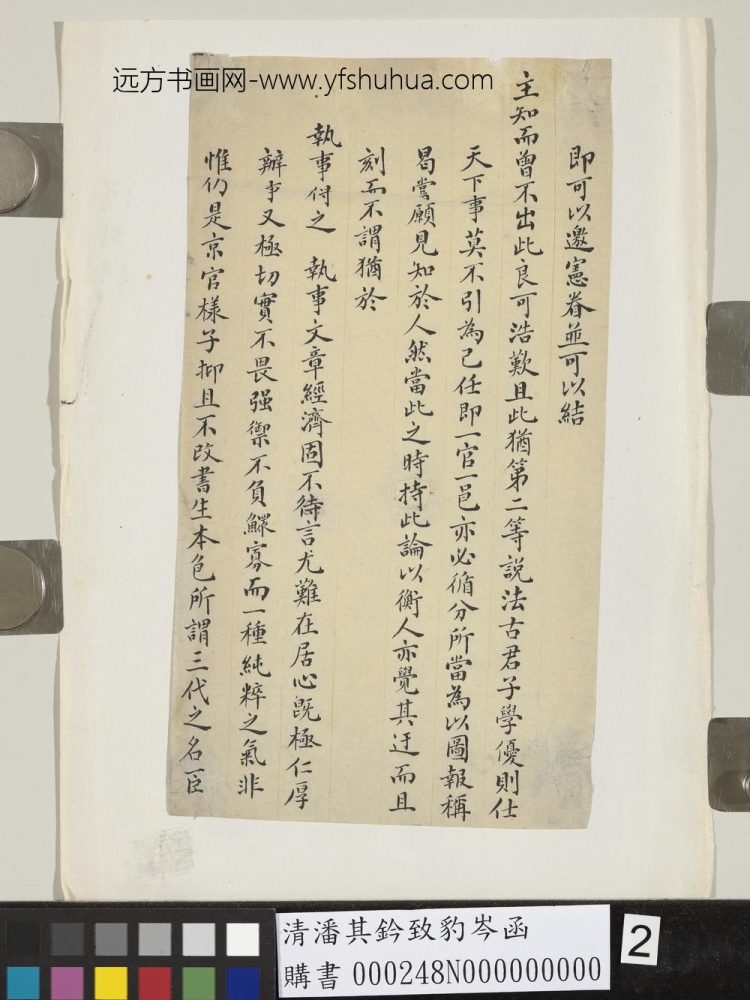 远方书画网-www.yfshuhua.com
即可以邀憲眷並可以結
主知而曾不出此良可浩歎且此猶第二等説法古君子學優則仕
天下事莫不引為己任即一官一邑亦必循分所當為以圖報稱
曷嘗願見知於人然當此之時持此論以衡人亦覺其迂而且
刻而不謂猶於
執事得之 執事文章經濟固不待言尤難在居心既極仁厚
辦事又極切實不畏强禦不負鰥寡而一種純粹之氣非
惟仍是京官樣子抑且不改書生本色所謂三代之名臣
清潘其鈐致豹岑函
購書 000248N000000000
2